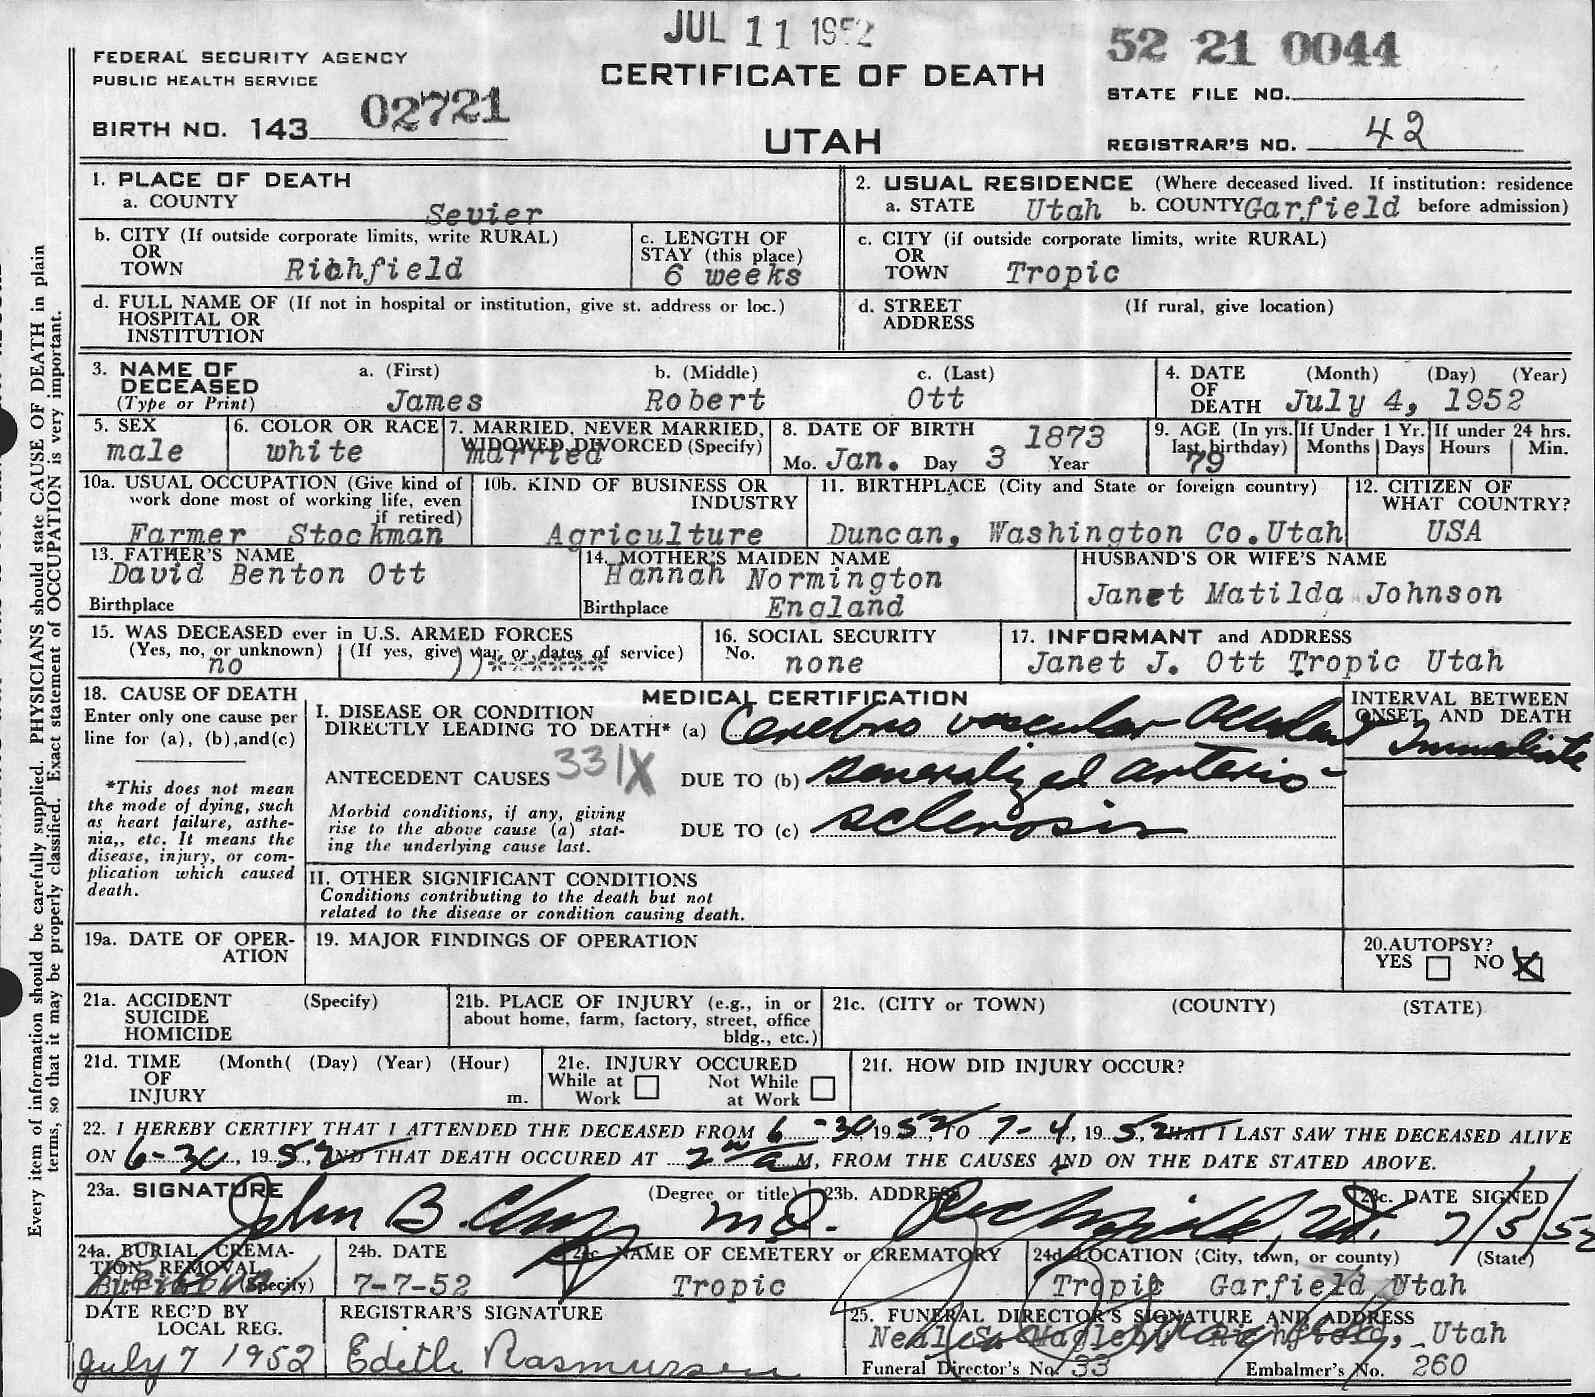 JUL 11 1952
52 21 0044
FEDERAL SECURITY AGENCY
PUBLIC HEALTH SERVICE
CERTIFICATE OF DEATH
STATE FILE NO.
BIRTH NO. 143 02721
UTAH
REGISTRAR'S NO. 42
Every item of information should be carefully supplied. PHYSICIANS should state CAUSE OF DEATH in plain
terms, so that it may be properly classified. Exact statement of OCCUPATION is very important.
1. PLACE OF DEATH
a. COUNTY
Sevier
2. USUAL RESIDENCE (Where deceased lived. If institution: residence
a. STATE Utah b. COUNTY Garfield before admission)
b. CITY (If outside corporate limits, write RURAL)
OR
TOWN Richfield
c. LENGTH OF
STAY (this place)
6 weeks
c. CITY (if outside corporate limits, write RURAL)
OR
TOWN Tropic
d. FULL NAME OF (If not in hospital or institution, give st. address or loc.)
HOSPITAL OR
INSTITUTION
d. STREET (If rural, give location)
ADDRESS
3. NAME OF a. (First) b. (Middle) c. (Last)
DECEASED
(Type or Print) James Robert Ott
4. DATE (Month) (Day) (Year)
OF
DEATH July 4, 1952
5. SEX
male
6. COLOR OR RACE
white
7. MARRIED, NEVER MARRIED,
WIDOWED, DIVORCED (Specify)
married
8. DATE OF BIRTH 1873
Mo. Jan. Day 3 Year
9. AGE (In yrs.
last birthday)
79
If Under 1 Yr.
Months Days
If under 24 hrs.
Hours Min.
10a. USUAL OCCUPATION (Give kind of
work done most of working life, even
if retired)
Farmer Stockman
10b. KIND OF BUSINESS OR
INDUSTRY
Agriculture
11. BIRTHPLACE (City and State or foreign country)
Duncan, Washington Co. Utah
12. CITIZEN OF
WHAT COUNTRY?
USA
13. FATHER'S NAME
David Benton Ott
Birthplace
14. MOTHER'S MAIDEN NAME
Hannah Normington
Birthplace England
HUSBAND'S OR WIFE'S NAME
Janet Matilda Johnson
15. WAS DECEASED ever in U.S. ARMED FORCES
(Yes, no, or unknown) (If yes, give war or dates of service)
no
16. SOCIAL SECURITY
No. none
17. INFORMANT and ADDRESS
Janet J. Ott Tropic Utah
18. CAUSE OF DEATH
Enter only one cause per
line for (a), (b), and (c)
*This does not mean
the mode of dying, such
as heart failure, asthe-
nia,, etc. It means the
disease, injury, or com-
plication which caused
death.
MEDICAL CERTIFICATION
I. DISEASE OR CONDITION
DIRECTLY LEADING TO DEATH* (a) Cerebro vascular Accident
INTERVAL BETWEEN
ONSET AND DEATH
Immediate
ANTECEDENT CAUSES 331X DUE TO (b) generalized arterio-
Morbid conditions, if any, giving
rise to the above cause (a) stat-
ing the underlying cause last.
DUE TO (c) sclerosis
II. OTHER SIGNIFICANT CONDITIONS
Conditions contributing to the death but not
related to the disease or condition causing death.
19a. DATE OF OPER-
ATION
19. MAJOR FINDINGS OF OPERATION
20. AUTOPSY?
YES NO X
21a. ACCIDENT (Specify)
SUICIDE
HOMICIDE
21b. PLACE OF INJURY (e.g., in or
about home, farm, factory, street, office
bldg., etc.)
21c. (CITY or TOWN) (COUNTY) (STATE)
21d. TIME (Month( (Day) (Year) (Hour)
OF
INJURY m.
21e. INJURY OCCURED
While at Work Not While at Work
21f. HOW DID INJURY OCCUR?
22. I HEREBY CERTIFY THAT I ATTENDED THE DECEASED FROM 6-30, 1952, TO 7-4, 1952 THAT I LAST SAW THE DECEASED ALIVE
ON 6-30, 1952 AND THAT DEATH OCCURED AT 2 a M, FROM THE CAUSES AND ON THE DATE STATED ABOVE.
23a. SIGNATURE (Degree or title)
John B. MD.
23b. ADDRESS
Richfield Ut.
23c. DATE SIGNED
7/5/52
24a. BURIAL, CREMA-
TION REMOVAL
(Specify)
Burial
24b. DATE
7-7-52
24c. NAME OF CEMETERY or CREMATORY
Tropic
24d. LOCATION (City, town, or county) (State)
Tropic Garfield Utah
DATE REC'D BY
LOCAL REG.
July 7 1952
REGISTRAR'S SIGNATURE
Edeth Rasmussen
25. FUNERAL DIRECTOR'S SIGNATURE AND ADDRESS
Neal S. Magleby Richfield, Utah
Funeral Director's No. 33 Embalmer's No. 260